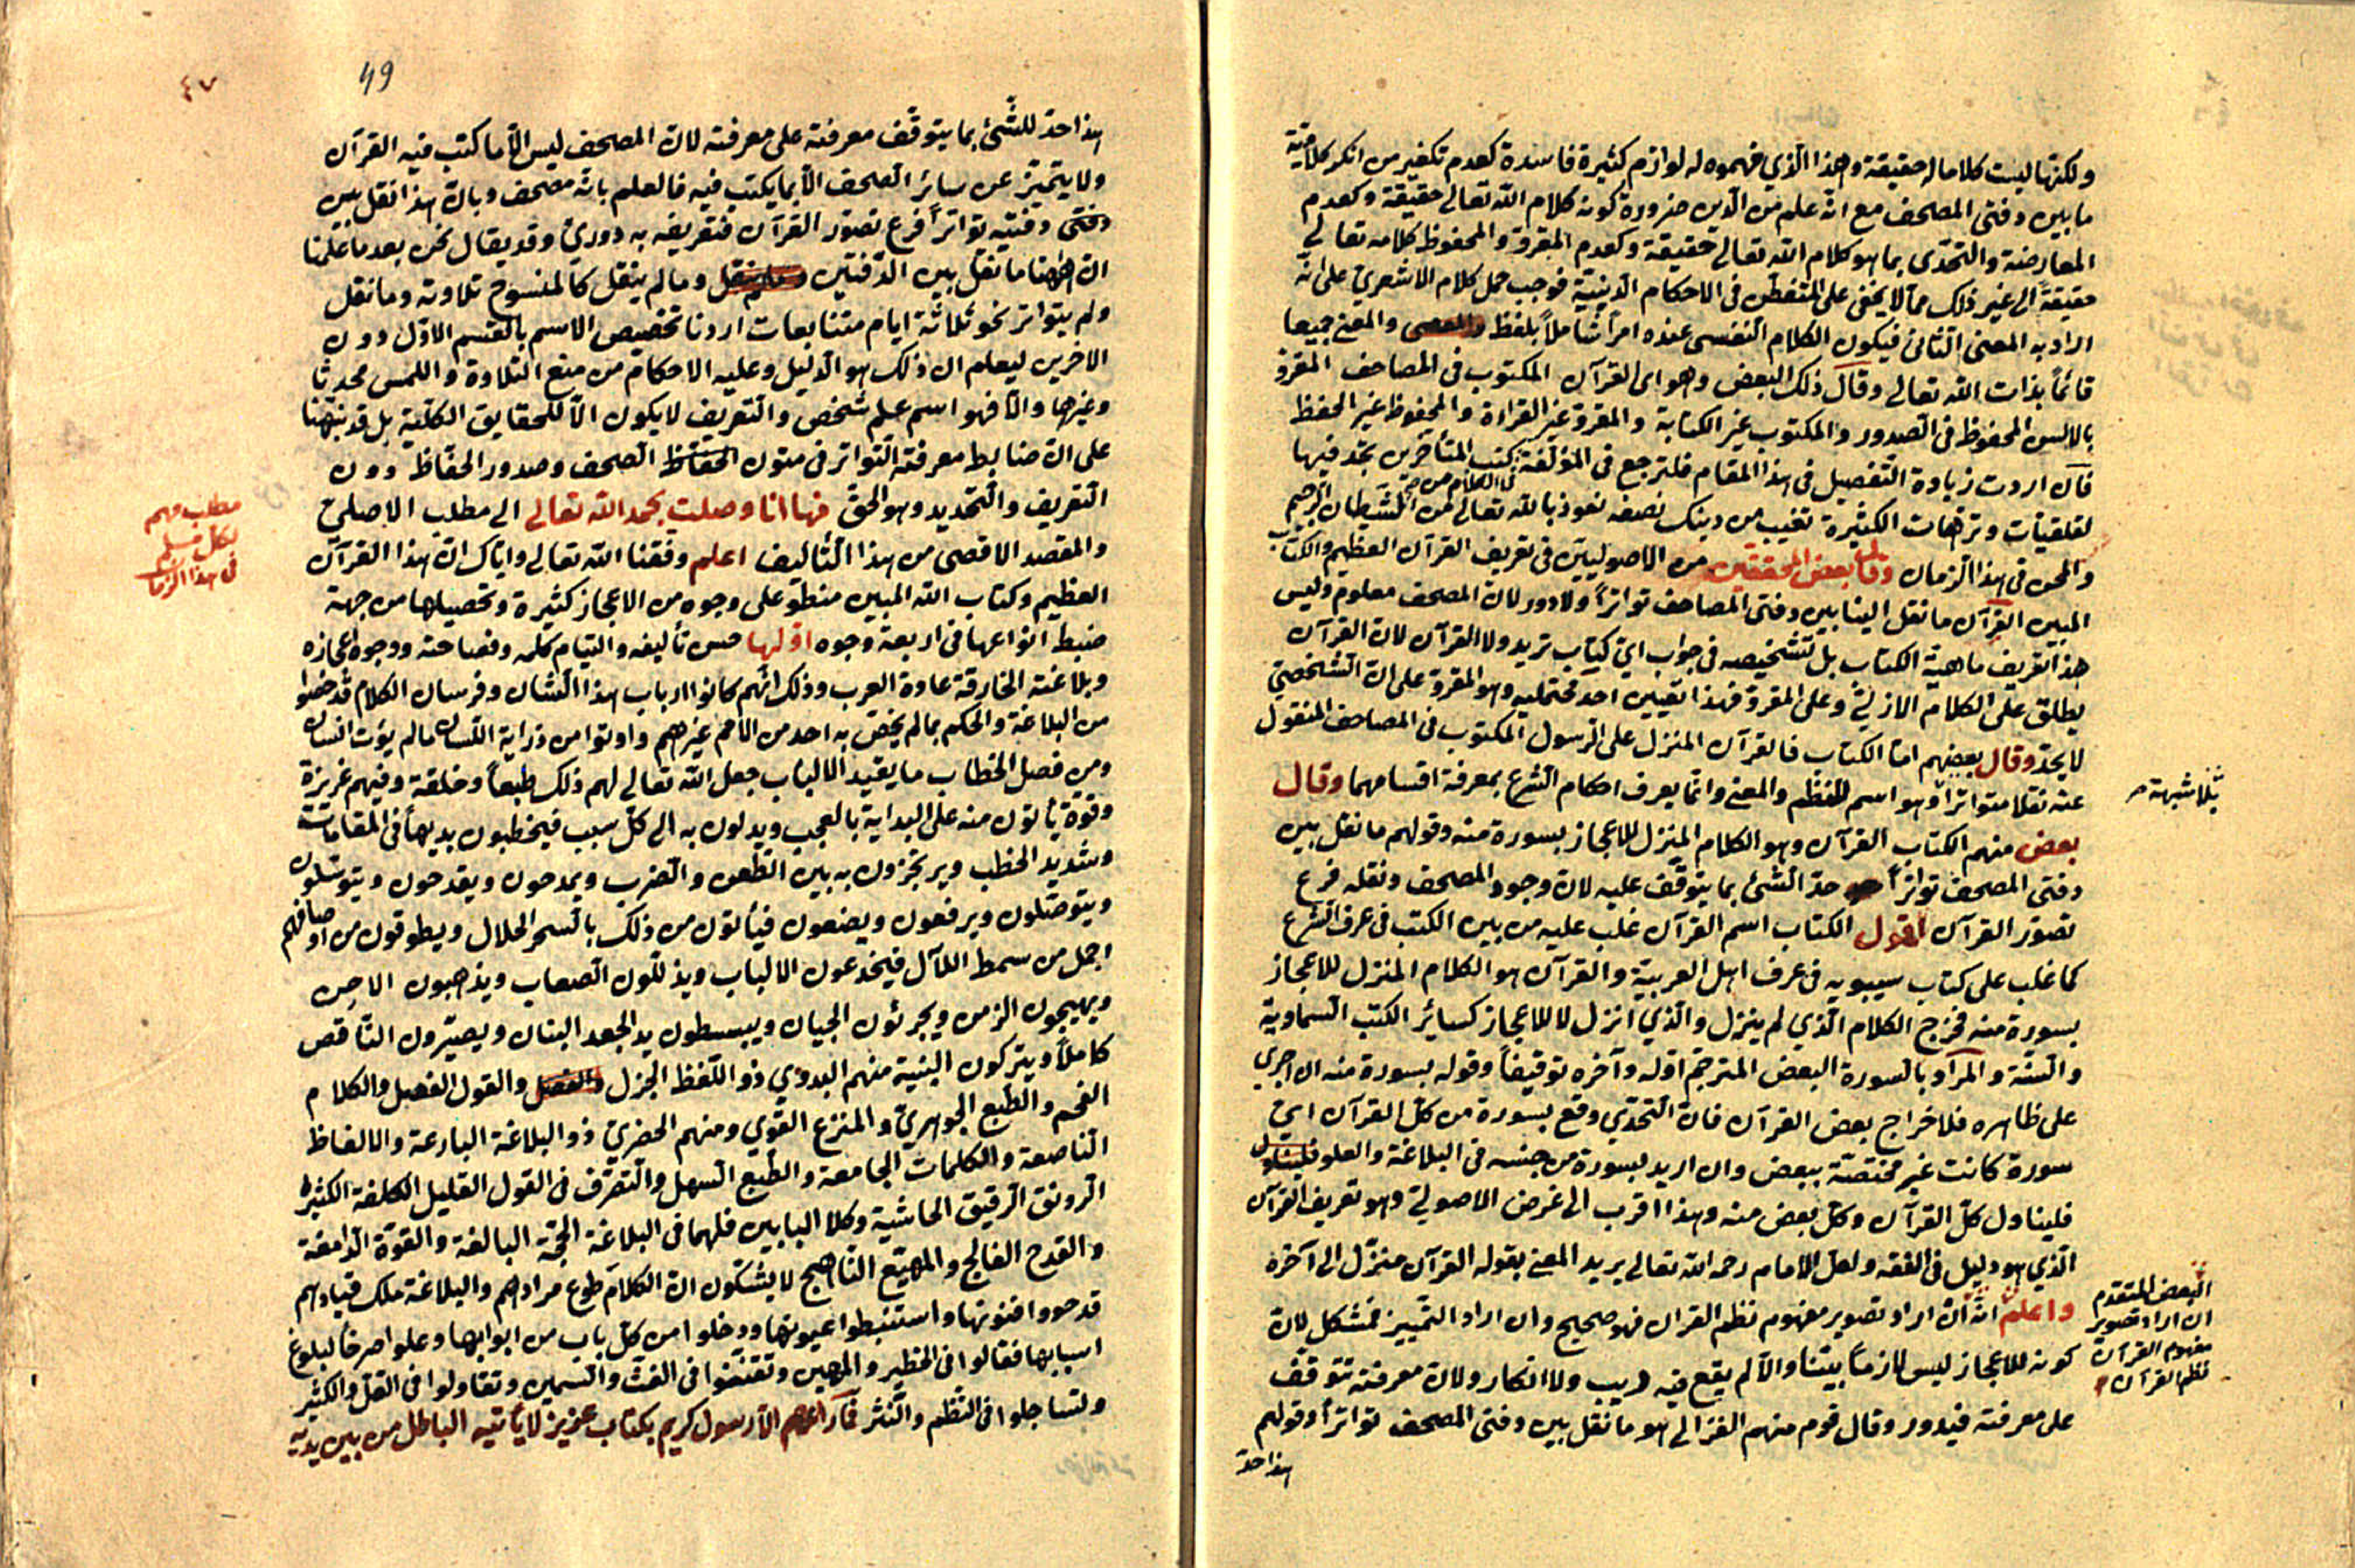 ولكنها ليست كلاما له حقيقة وهذا الذي فهموه له لوازم كثيرة فاسدة كعدم تكفير من انكر كلامية
ما بين دفتى المصحف مع انه علم من الدين ضرورة كونه كلام الله تعالى حقيقة وكعدم
المعارضة والتحدى بما هو كلام الله تعالى حقيقة وكعدم المقروّ والمحفوظ كلامه تعالى
حقيقةً الى غير ذلك مما لا يخفى على المتفطن فى الاحكام الدينيّة فوجب حمل كلام الاشعري على انّه
اراد به المعنى الثانى فيكون الكلام النفسى عنده امراً شاملاً بلفظ والمعنى جميعا
قائماً بذات الله تعالى وقال ذلك البعض وهو اى القرآن المكتوب فى المصاحف المقروّ
بالالسن المحفوظ فى الصدور والمكتوب غير الكتابة والمقروّ غير القراءة والمحفوظ غير الحفظ
فان اردت زيادة التفصيل فى هذا المقام فلترجع فى المؤلّفة كتب المتأخرين تجد فيها
فى الكلام من
الكثيرة تغيب من دينك نصفه نعوذ بالله تعالى من الشيطان الرجيم
والمحن فى هذا الزمان وقال بعض المحققين من الاصوليين فى تعريف القرآن العظيم والكتاب
المبين القرآن ما نقل الينا بين دفتى المصاحف تواتراً ولا دور لان المصحف معلوم وليس
هذا تعريف ماهيّة الكتاب بل تشخيصه فى جواب اىّ كتاب تريد ولا القرآن لان القرآن
يطلق على الكلام الازلىّ وعلى المقروّ فهذا تعيين احد محتمليه وهو المقروّ على ان الشخصىّ
لا يحدّ وقال بعضهم امّا الكتاب فالقرآن المنزل على الرسول المكتوب فى المصاحف المنقول
عنه نقلا متواتراً وهو اسم للنظم والمعنى وانّما يعرف احكام الشرع بمعرفة اقسامهما وقال
بلا شبهة صح
بعض منهم الكتاب القرآن وهو الكلام المنزل للاعجاز بسورة منه وقولهم ما نقل بين
دفتى المصحف تواتراً حدّ الشئ بما يتوقّف عليه لان وجود المصحف ونقله فرع
تصوّر القرآن اقول الكتاب اسم القرآن غلب عليه من بين الكتب فى عرف الشرع
كما غلب على كتاب سيبويه فى عرف اهل العربيّة والقرآن هو الكلام المنزل للاعجاز
بسورة منه فخرج الكلام الذي لم ينزل والذي انزل لا للاعجاز كسائر الكتب السماويّة
والسنّة والمراد بالسورة البعض المترجم اوّله وآخره توقيفاً وقوله بسورة منه ان اجري
على ظاهره فلاخراج بعض القرآن فان التحدّي وقع بسورة من كلّ القرآن اىّ
سورة كانت غير مختصّة ببعض وان اريد بسورة من جنسه فى البلاغة والعلو
فليتناول كلّ القرآن وكلّ بعض منه وهذا اقرب الى غرض الاصولىّ وهو تعريف القرآن
الذي هو دليل فى الفقه ولعل الامام رحمه الله تعالى يريد المعنى بقوله القرآن منزّل الى آخره
واعلم انّه ان اراد تصوير مفهوم نظم القران فهو صحيح وان اراد التمييز فمشكل لان
البعض المتقدم
ان اراد تصوير
مفهوم القرآن
نظم القرآن
كونه للاعجاز ليس لازماً بيّنا والّا لم يقع فيه ريب ولا انكار ولان معرفته تتوقّف
على معرفته فيدور وقال قوم منهم الغزالى هو ما نقل بين دفتى المصحف تواتراً وقولهم
هذا حدّ
٤٧
49
هذا حدّ للشّئ بما يتوقّف معرفته على معرفته لان المصحف ليس الّا ما كتب فيه القرآن
ولا يتميّز عن سائر الصحف الّا بما يكتب فيه فالعلم بانّه مصحف وبان هذا نقل بين
دفتى دفتيه تواتراً فرع تصوّر القرآن فتعريفه به دورىّ وقد يقال نحن بعد ما علمنا
ان ههنا ما نقل بين الدفتين وما لم ينقل كالمنسوخ تلاوته وما نقل
ولم يتواتر نحو ثلاثة ايام متتابعات اردنا تخصيص الاسم بالقسم الاوّل دون
الاخرين ليعلم ان ذلك هو الدليل وعليه الاحكام من منع التلاوة واللمس محدثا
وغيرها والّا فهو اسم علم شخص والتعريف لا يكون الّا للحقايق الكلّية بل قد نبّهنا
على ان ضابط معرفته التواتر فى متون الصحف وصدور الحفّاظ دون
التعريف والتحديد وهو الحقّ فها انا وصلت بحمد الله تعالى الى مطلب الاصلىّ
مطلب مهم
لكل مسلم
فى هذا الزمان
والمقصد الاقصى من هذا التأليف اعلم وفقنا الله تعالى وايّاك انّ هذا القرآن
العظيم وكتاب الله المبين منطو على وجوه من الاعجاز كثيرة وتحصيلها من جهة
ضبط انواعها فى اربعة وجوه اوّلها حسن تأليفه والتيام كلمه وفصاحته ووجوه اعجازه
وبلاغته الخارقة عادة العرب وذلك انّهم كانوا ارباب هذا الشان وفرسان الكلام قد خصّوا
من البلاغة والحكم بما لم يخصّ به احد من الامم غيرهم واوتوا من ذرابة اللسان ما لم يؤت انسان
ومن فصل الخطاب ما يقيد الالباب جعل الله تعالى لهم ذلك طبعاً وخلقة وفيهم غريزة
وقوّة يأتون منه على البداية بالعجب ويدلون به الى كلّ سبب فيخطبون بديهاً فى المقامات
وشديد الخطب ويرتجزون به بين الطعن والضرب ويمدحون ويقدحون ويتوسّلون
ويتوصّلون ويرفعون ويضعون فيأتون من ذلك بالسحر الحلال ويطوقون من اوصافهم
اجمل من سمط اللآل فيخدعون الالباب ويذلّلون الصعاب ويذهبون الاحن
ويهيجون الزمن ويجرئون الجبان ويبسطون يد الجعد البنان ويصيّرون الناقص
كاملاً ويتركون النبيه منهم البدوي ذو اللفظ الجزل والقول الفصل والكلام
الفخم والطبع الجوهرىّ والمنزع القوي ومنهم الحضرىّ ذو البلاغة البارعة والالفاظ
الناصعة والكلمات الجامعة والطبع السهل والتصرّف فى القول القليل الكلفة الكثير
الرونق الرقيق الحاشية وكلا البابين فلهما فى البلاغة الحجّة البالغة والقوّة الدامغة
والقدح الفالج والمهيع الناهج لا يشكّون ان الكلام طوع مرادهم والبلاغة ملك قيادهم
قد حووا فنونها واستنبطوا عيونها ودخلوا من كلّ باب من ابوابها وعلوا صرحاً لبلوغ
اسبابها فقالوا فى الخطير والمهين وتفنّنوا فى الغثّ والسمين وتقاولوا فى القلّ والكثير
وتساجلوا فى النظم والنثر فما راعهم الّا رسول كريم بكتاب عزيز لا يأتيه الباطل من بين يديه